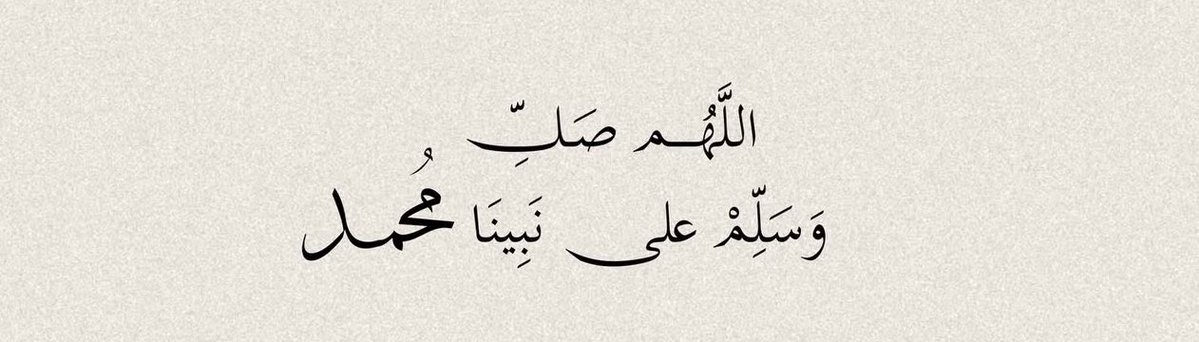 اللَّهُم صَلِّ
وَسَلِّمْ على نَبِينَا مُحمد